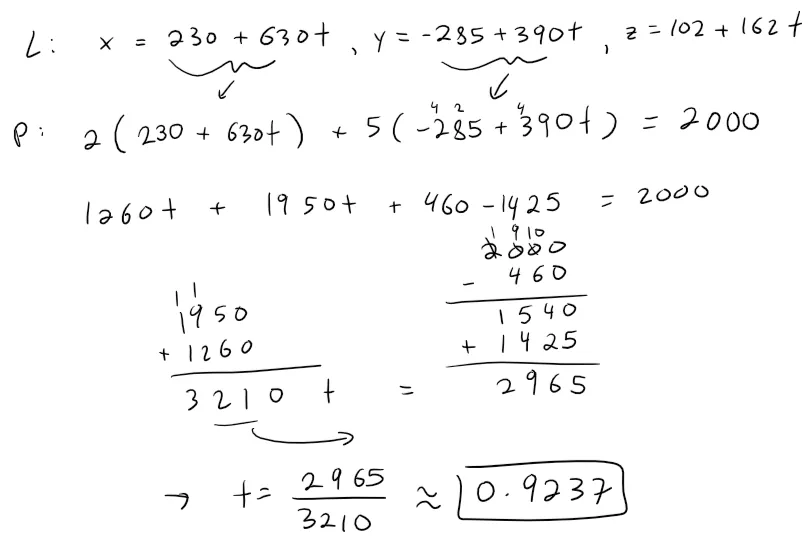 L: x = 230 + 630t , y = -285 + 390t , z = 102 + 162t
P: 2(230 + 630t) + 5(-285 + 390t) = 2000
4 2 4
1260t + 1950t + 460 - 1425 = 2000
1 9 10
2000
- 460
1540
+ 1425
2965
1 1
1950
+ 1260
3210 t =
→ t = 2965/3210 ≈ 0.9237